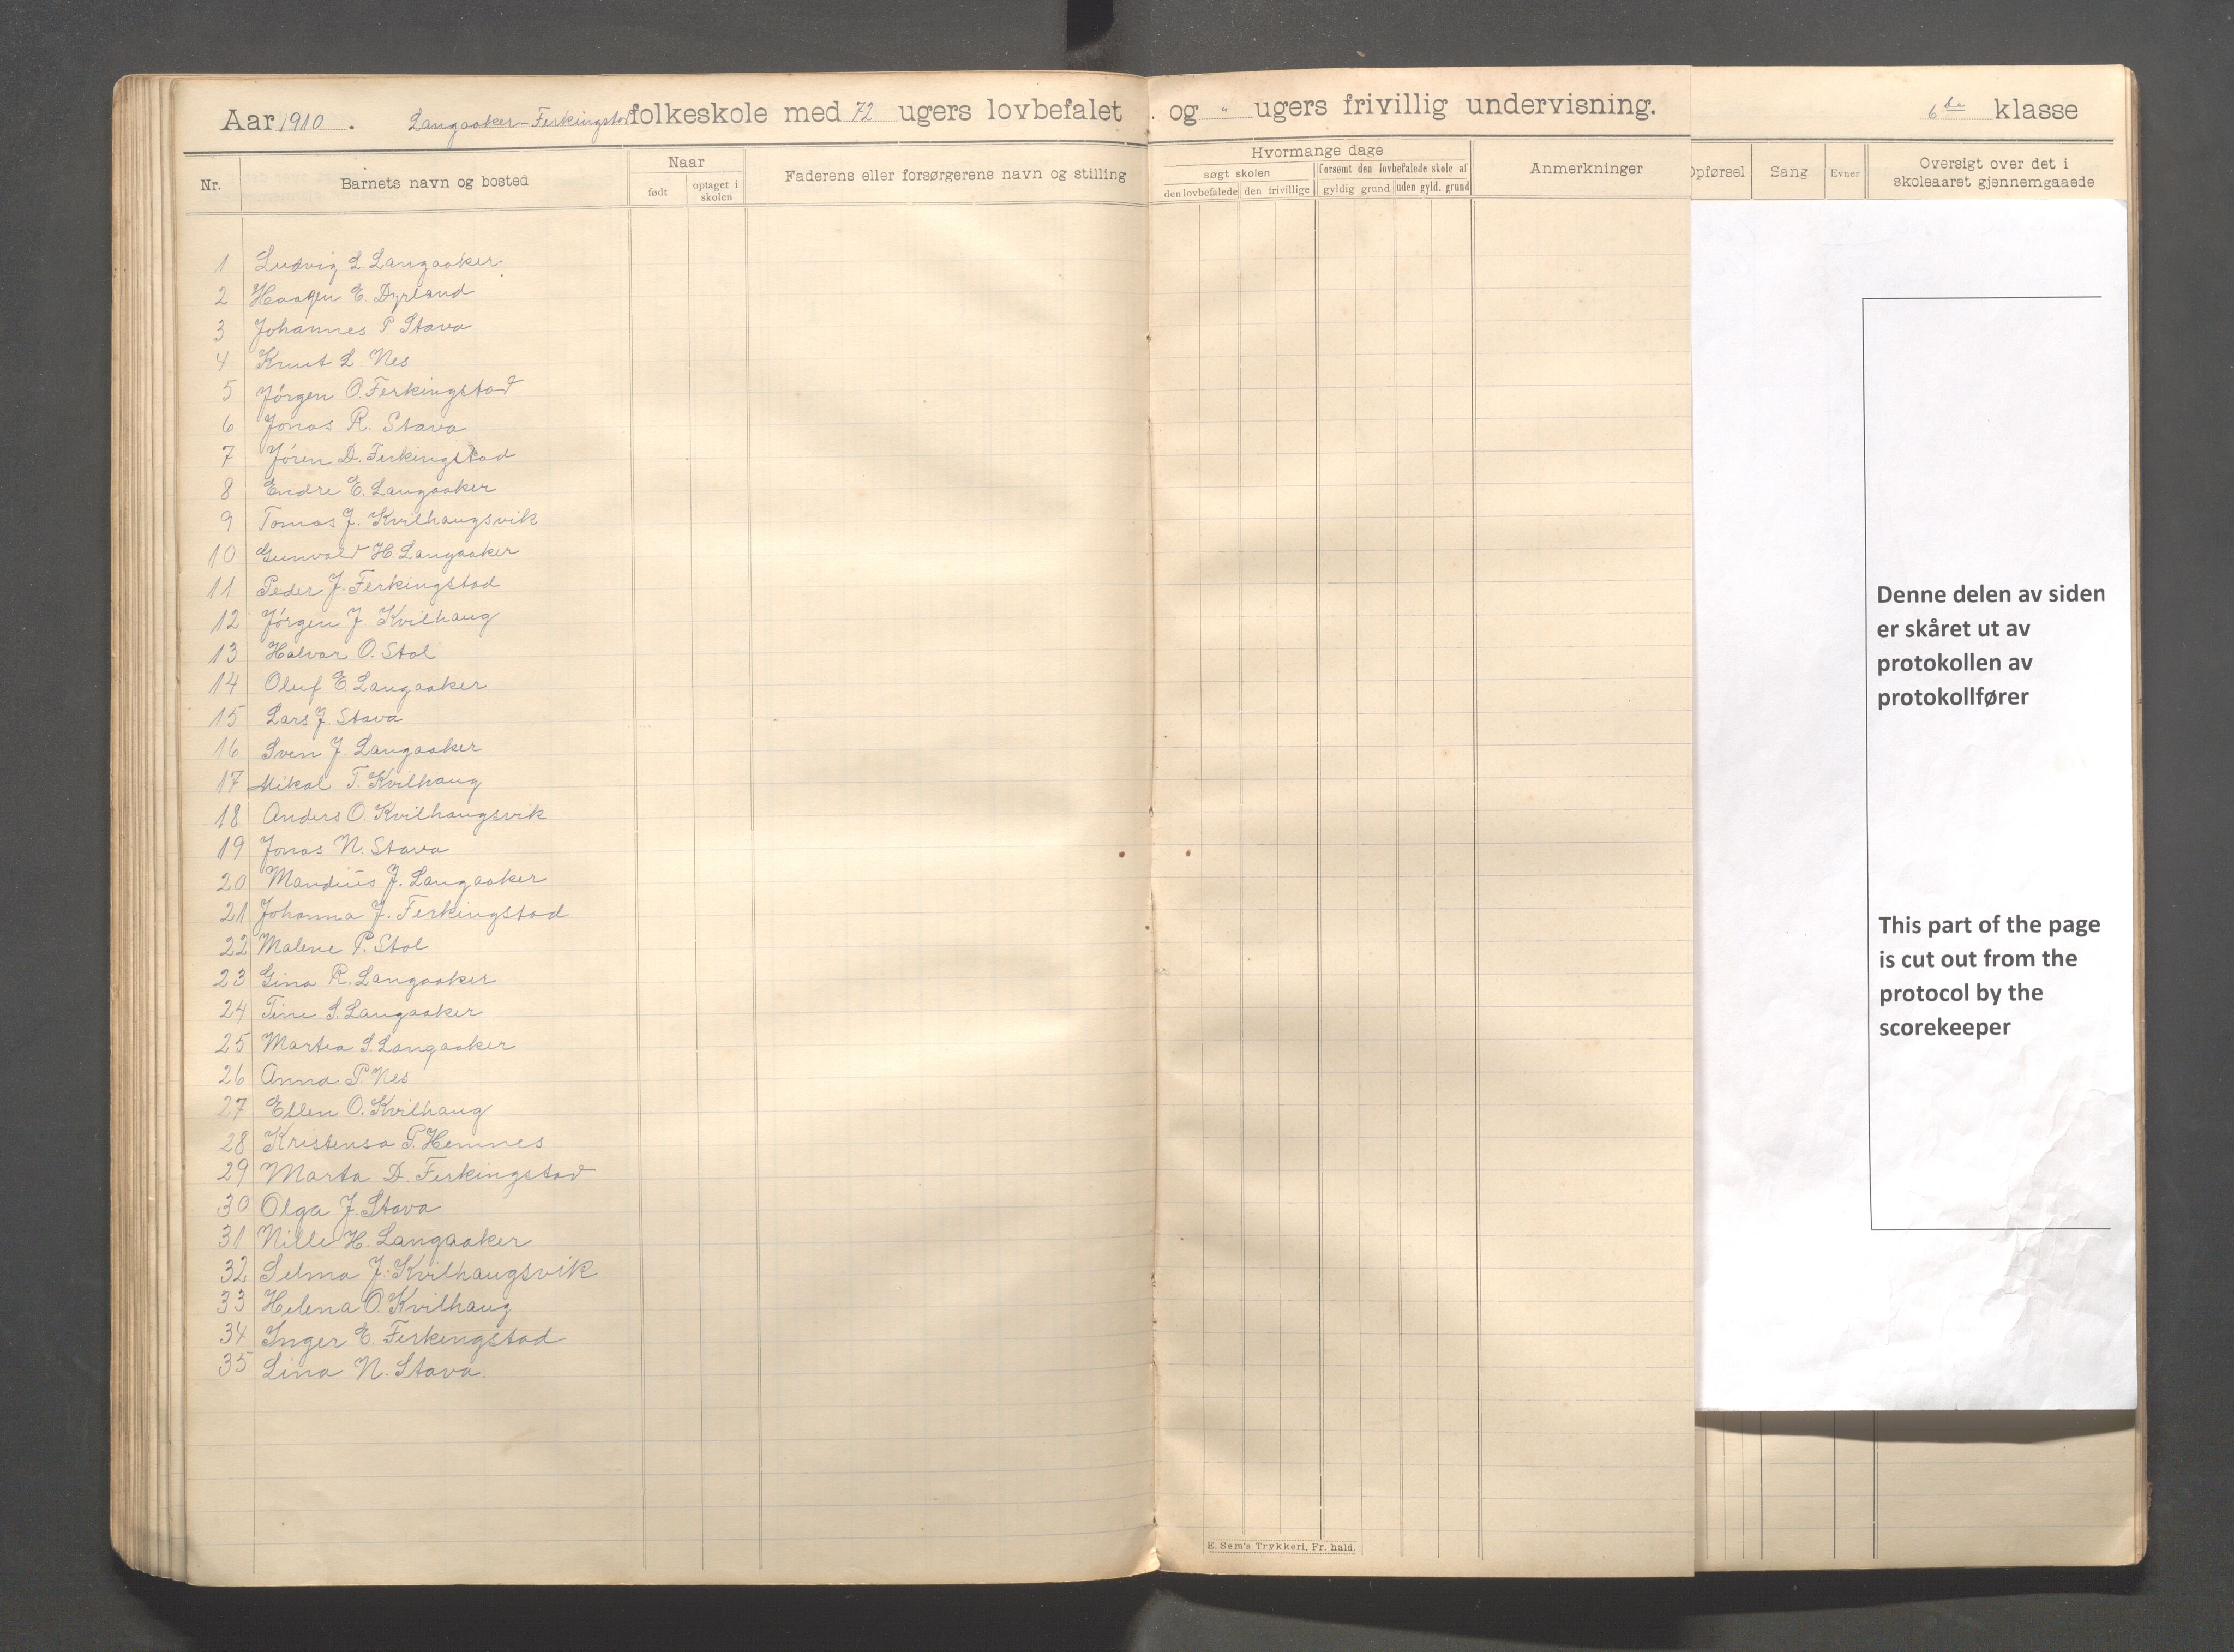 Aar 1910 . Langaaker-Ferkingstad folkeskole med 72 ugers lovbefalet og " ugers frivillig undervisning. 6te klasse
Nr.
Barnets navn og bosted
Naar
født
optaget i skolen
Faderens eller forsørgerens navn og stilling
Hvormange dage
søgt skolen
forsømt den lovbefalede skole af
den lovbefalede
den frivillige
gyldig grund
uden gyld. grund
Anmerkninger
Opførsel
Sang
Evner
Oversigt over det i
skoleaaret gjennemgaaede
1 Ludvig L. Langaaker.
2 Haagen E. Dyrland
3 Johannes P Stava
4 Knut L. Nes
5 Jörgen O. Ferkingstad
6 Jonas R. Stava
7 Jören D. Ferkingstad
8 Endre E. Langaaker
9 Tomas J. Kvilhaugsvik
10 Gunvald H. Langaaker
11 Peder J. Ferkingstad
12 Jörgen J. Kvilhaug
13 Halvar O. Stol
14 Oluf E. Langaaker
15 Lars J. Stava
16 Sven J. Langaaker
17 Mikal T. Kvilhaug
18 Anders O. Kvilhaugsvik
19 Jonas N. Stava
20 Mandius J. Langaaker
21 Johanna J. Ferkingstad
22 Malene P. Stol
23 Gina R. Langaaker
24 Tine S. Langaaker
25 Marta S. Langaaker
26 Anna P. Nes
27 Ellen O. Kvilhaug
28 Kristensa P. Hemnes
29 Marta D. Ferkingstad
30 Olga J. Stava
31 Nille H. Langaaker
32 Selma J. Kvilhaugsvik
33 Helena O. Kvilhaug
34 Inger E. Ferkingstad
35 Lina N. Stava.
E. Sem's Trykkeri, Fr. hald.
Denne delen av siden
er skåret ut av
protokollen av
protokollfører
This part of the page
is cut out from the
protocol by the
scorekeeper